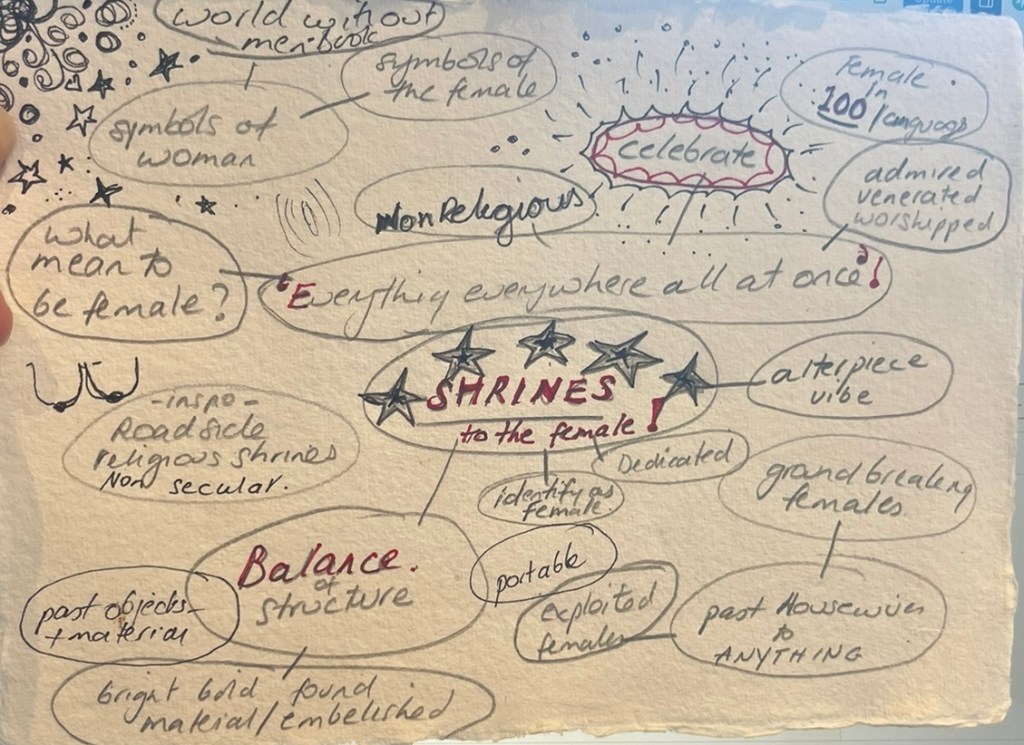 world without
men book
symbols of
the female
symbols of
woman
celebrate
Female
in
100 languags
admired
venerated
worshipped
NonReligious
what
mean to
be female?
"Everythig everywhere all at once"!
SHRINES
to the female!
alterpiece
vibe
-inspo-
Roadside
religious shrines
Non secular.
Dedicated
identify as
female.
ground breaking
females.
Balance.
of
structure
portable
exploited
females
past Housewives
to
ANYTHING
past objects
+ material
bright bold found
material/embelished